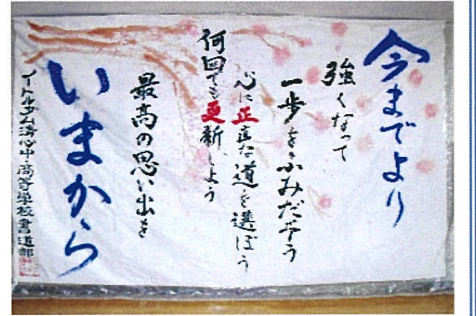 今までより
強くなって
一歩をふみだそう
心に正直な道を選ぼう
何回でも更新しよう
最高の思い出を
いまから
ノートルダム清心中・高等学校書道部